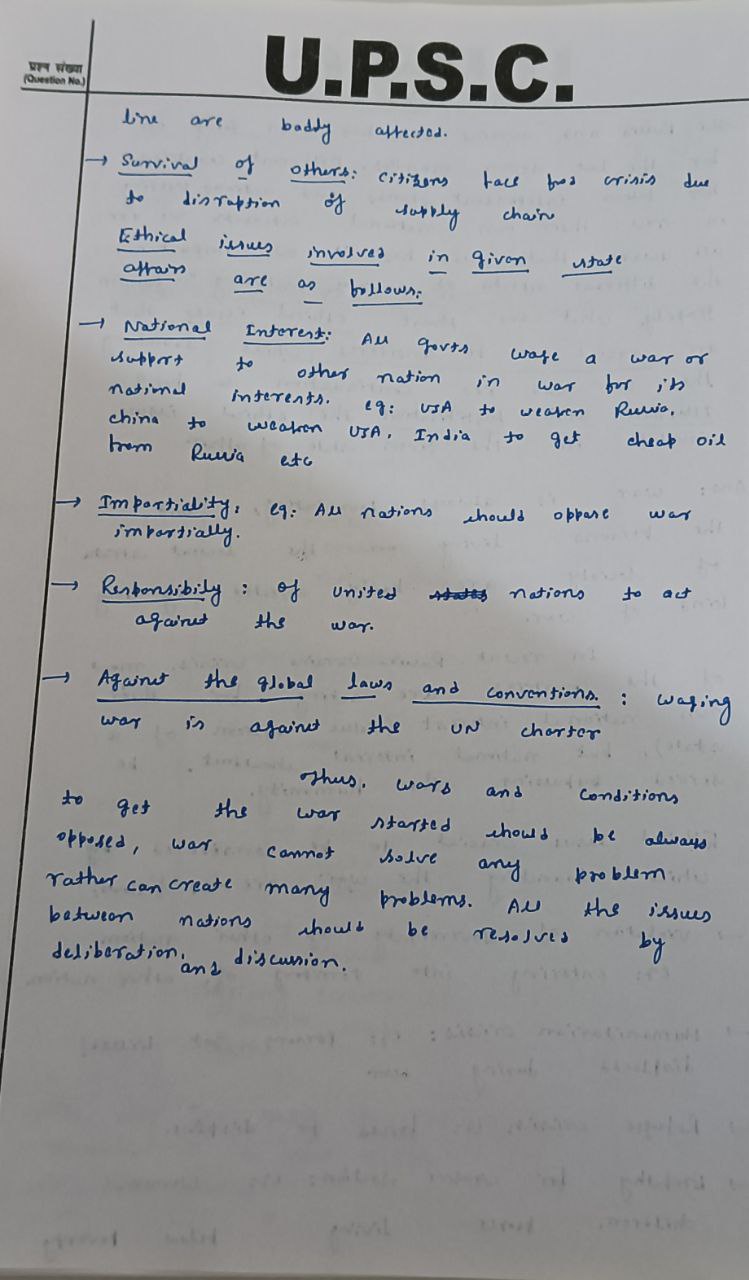 U.P.S.C.
प्रश्न संख्या
(Question No.)
line are baddy affected.
→ Survival of others: citizens face food crisis due
to disraption of supply chain
Ethical issues involved in given state
affairs are as follows:
→ National Interest: All govts wage a war or
support to other nation in war for its
national interests. eg: USA to weaken Russia,
china to weaken USA, India to get cheap oil
from Russia etc
→ Impartiality: eg: All nations should oppose war
impartially.
→ Responsibily : of united states nations to act
against the war.
→ Against the global laws and conventions. : waging
war is against the UN charter
Thus, wars and conditions
to get the war started should be always
opposed, war cannot solve any problem
rather can create many problems. All the issues
between nations should be resolved by
deliberation, and discussion.